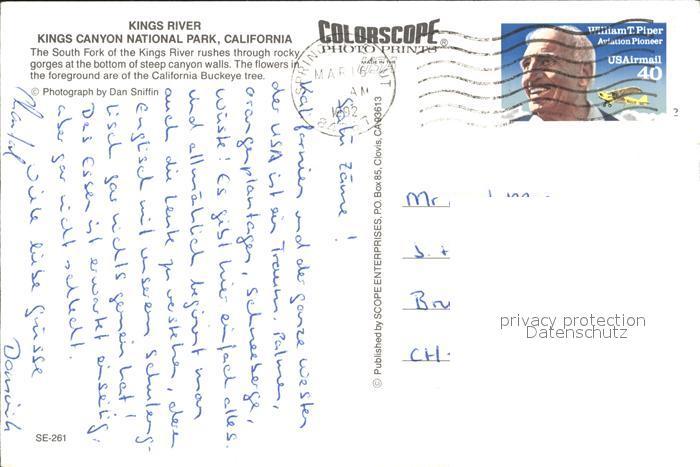 KINGS RIVER
KINGS CANYON NATIONAL PARK, CALIFORNIA
The South Fork of the Kings River rushes through rocky
gorges at the bottom of steep canyon walls. The flowers in
the foreground are of the California Buckeye tree.
© Photograph by Dan Sniffin
COLORSCOPE®
PHOTO PRINTS
MADE IN
MAR 16
AM
1992
William T. Piper
Aviation Pioneer
USAirmail
40
zäme!
Kalifornien und der ganze Westen
der USA ist ein Traum. Palmen,
orangenplantagen, Schneeberge,
Wüste! Es gibt hier einfach alles.
und allmählich beginnt man
auch die Leute zu verstehen, deren
Englisch mit unserem Schuleng-
lisch gar nichts gemein hat!
Das Essen ist erwartet einseitig,
aber gar nicht schlecht.
Viele liebe Grüsse
Dominik
© Published by SCOPE ENTERPRISES, P.O. Box 85, Clovis, CA 93613
Mr
CH-
privacy protection
Datenschutz
SE-261